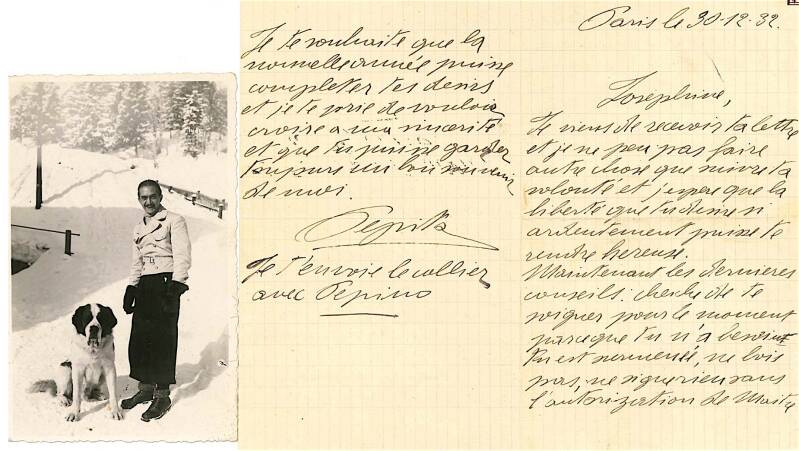 Paris le 30-12-32.
Josephine,
Je viens de recevoir ta lettre
et je ne peu pas faire
autre chose que suivre ta
volonté et j'espere que la
liberté que tu desires si
ardentement puisse te
rendre hereuse.
Maintenant les dernieres
conseils: cherche de te
soigner pour le moment
parceque tu n'a besoin
tu est surmenée, ne bois
pas, ne signe rien sans
l'autorization de Maitre
Je te souhaite que la
nouvelle année puisse
completer tes desirs
et je te prie de vouloir
croire a ma sincerité
et que tu puisse garder
toujours un bon souvenir
de moi.
Pepito
Je t'envoie le collier
avec Pepino